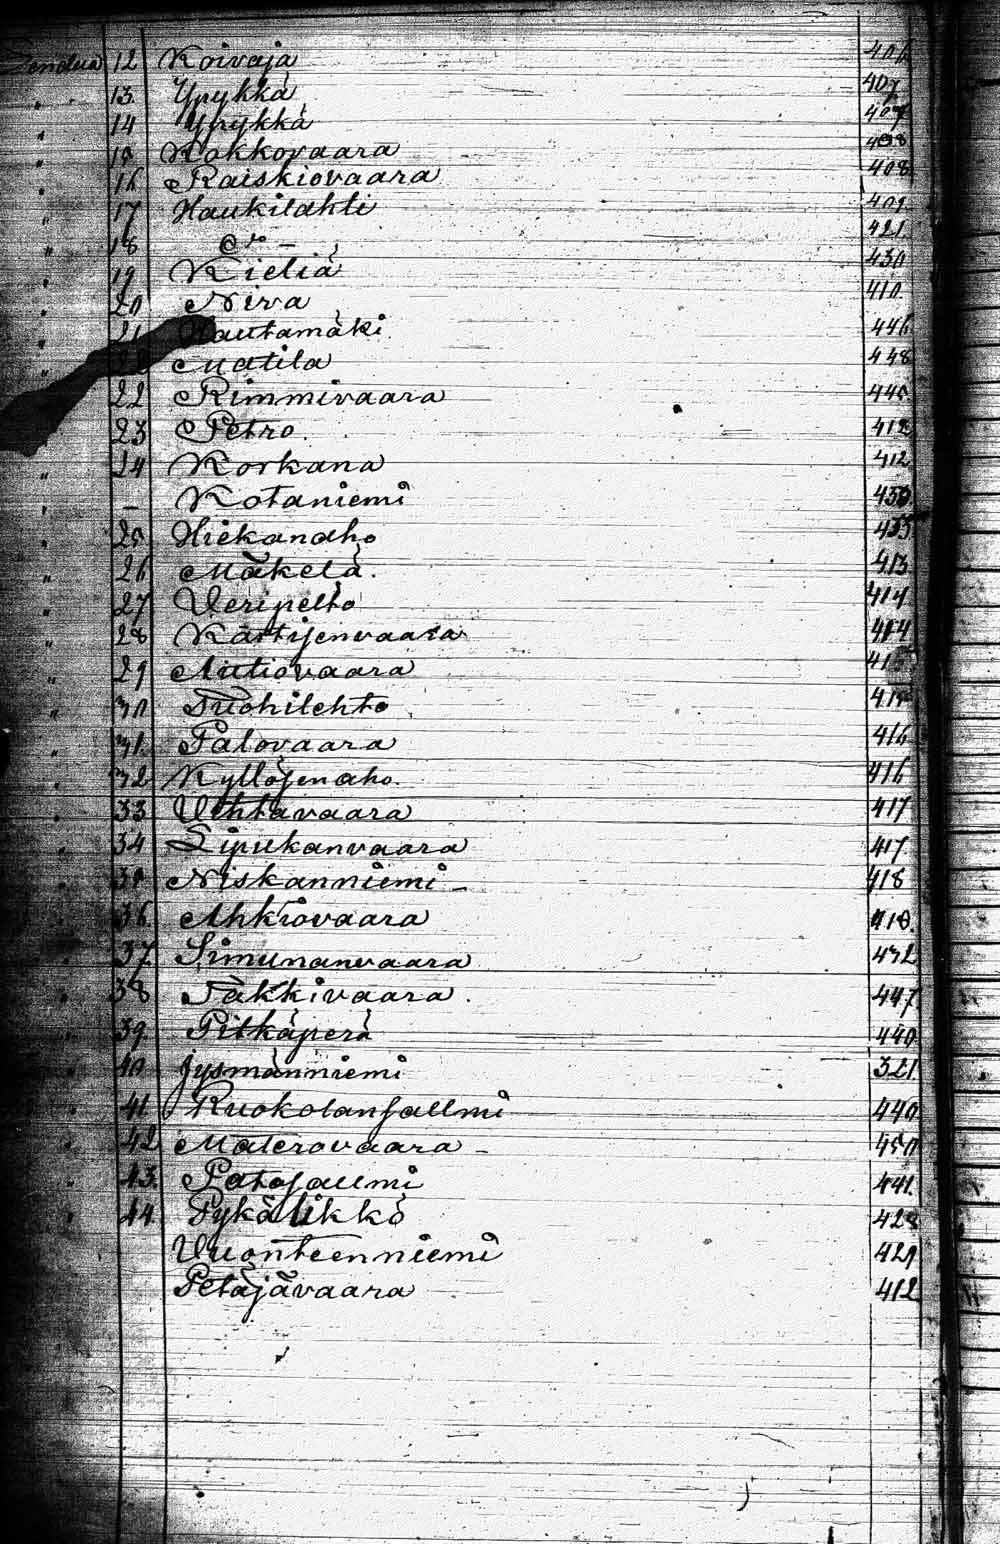 12 Koivaja 406
" 13 Ypykkä 407
" 14 Ypykkä 407
" 15 Kokkovaara 408
" 16 Raiskiovaara 408
" 17 Haukilahti 409
" 18 do 421
" 19 Kieliä 430
" 20 Niva 410
" 21 Hautamäki 446
" Matila 448
22 Rimmivaara 445
23 Petro 412
" 24 Korkana 412
" – Kotaniemi 430
" 25 Hiekanaho 435
" 26 Mäkelä 413
" 27 Veripelto 414
" 28 Kärtijenvaara 414
" 29 Autiovaara 415
" 30 Tuohilehto 415
" 31 Palovaara 416
" 32 Kyllöjenaho 416
" 33 Uihtavaara 417
" 34 Lipukanvaara 417
" 35 Niskanniemi 418
" 36 Ahkiovaara 418
" 37 Simunanvaara 432
" 38 Jäkkivaara 447
" 39 Pitkäperä 440
" 40 Jysmänniemi 321
" 41 Ruokolansallmi 440
" 42 Materovaara 450
" 43 Patosallmi 441
" 44 Pykälikkö 428
Vuonteenniemi 429
Petäjävaara 412